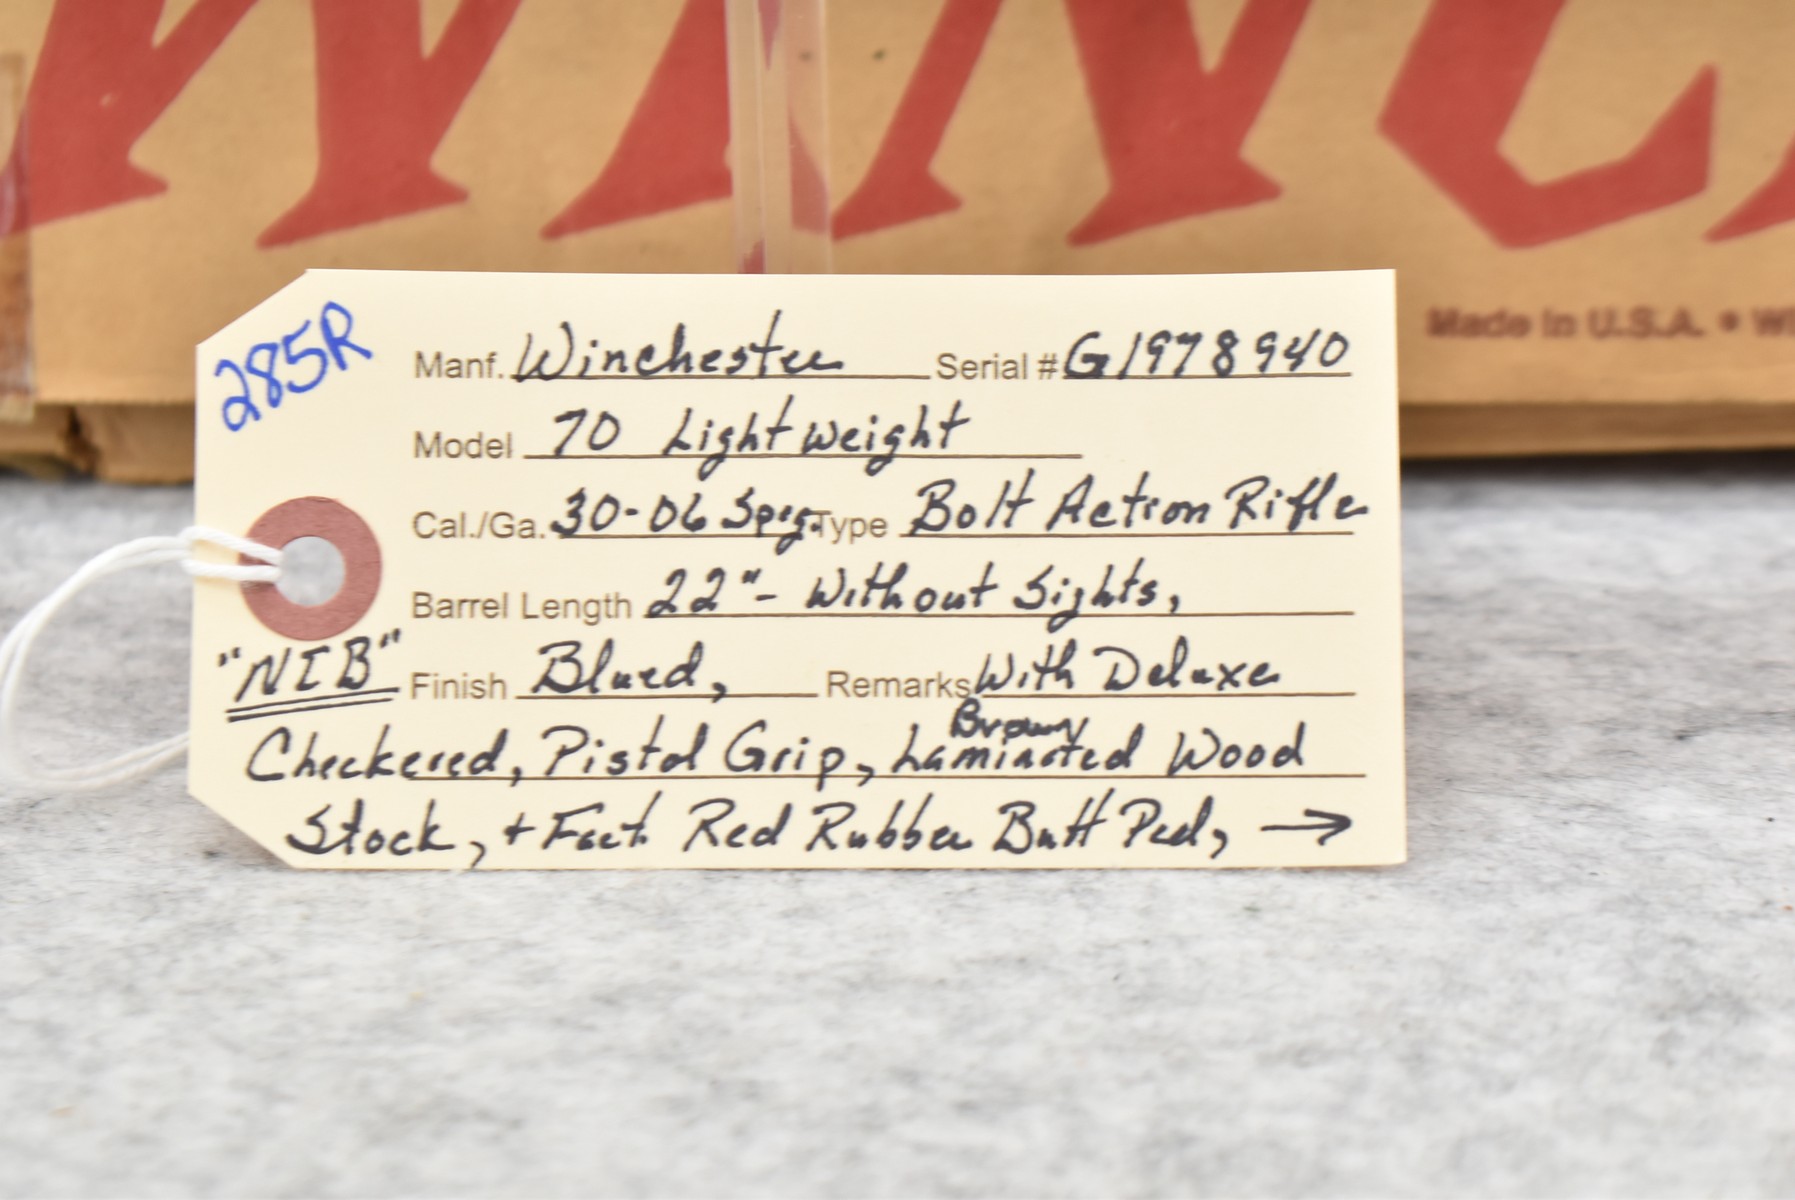 WINC
Made in U.S.A. • WI
285R
Manf. Winchester Serial # G1978940
Model 70 Lightweight
Cal./Ga. 30-06 Sprg. Type Bolt Action Rifle
Barrel Length 22"- Without Sights,
"NIB" Finish Blued, Remarks With Deluxe
Brown
Checkered, Pistol Grip, Laminated Wood
Stock, + Fact. Red Rubber Butt Pad, →